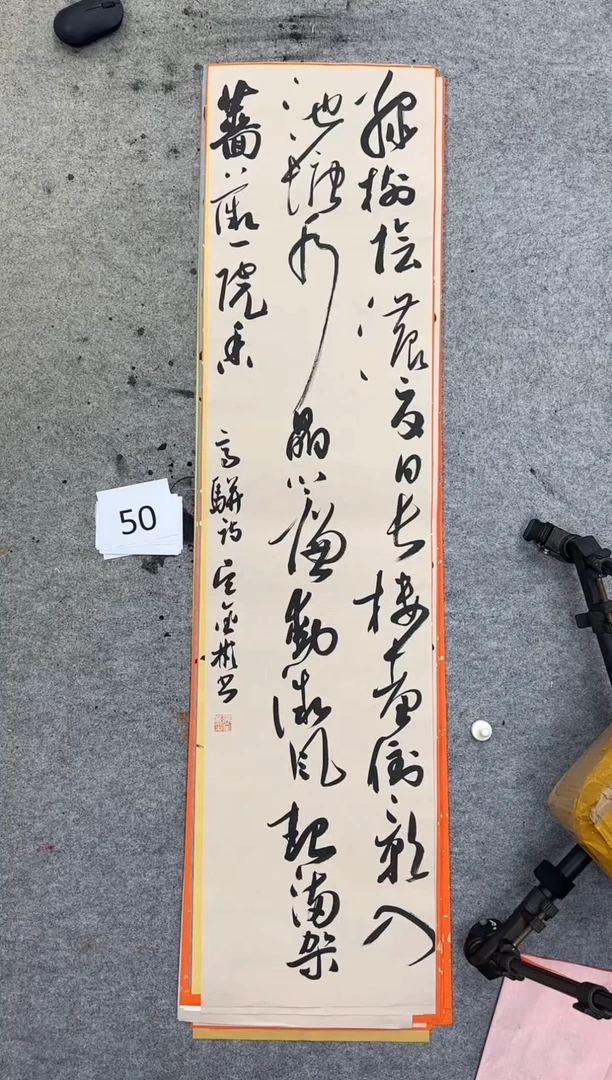 綠樹陰濃夏日長樓臺倒影入
池塘水晶簾動微風起滿架
薔薇一院香
高駢詩 金彬书
50